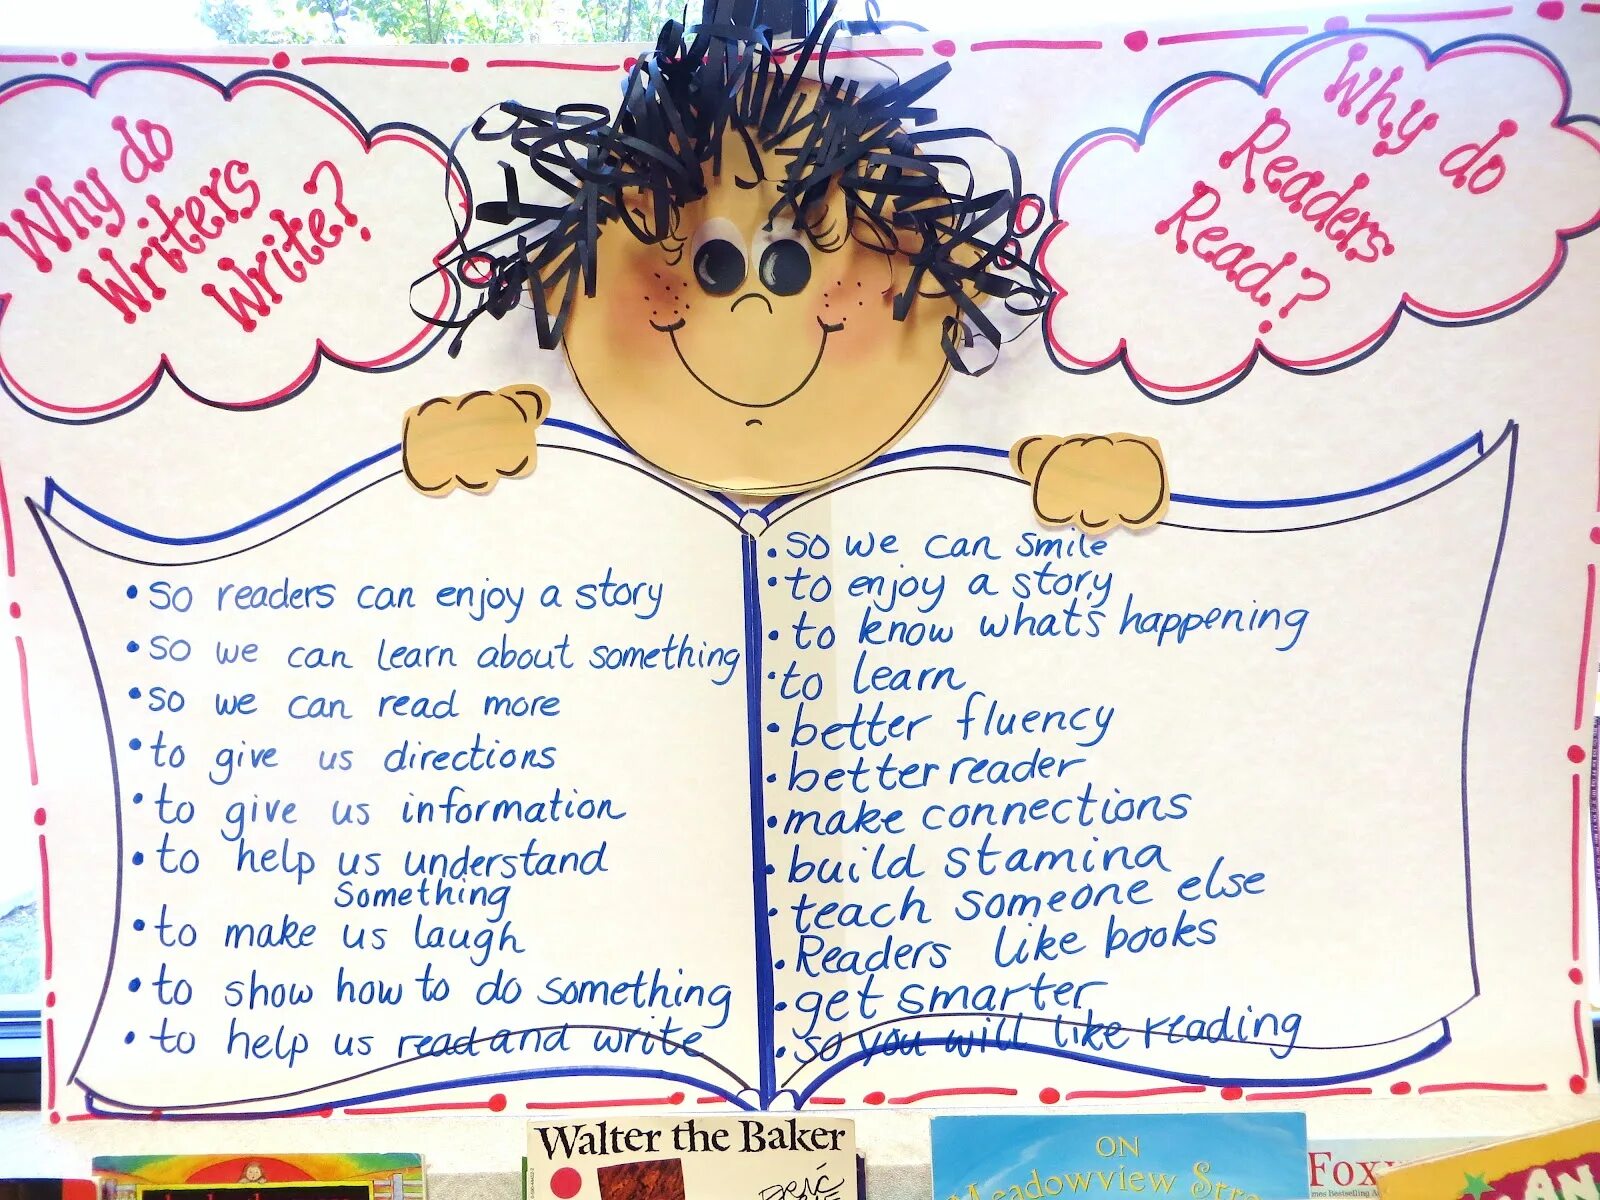 Why do
Writers
Write?
Why do
Readers
Read?
• so readers can enjoy a story
• so we can learn about something
• so we can read more
• to give us directions
• to give us information
• to help us understand
something
• to make us laugh
• to show how to do something
• to help us read and write
• so we can smile
• to enjoy a story
• to know what's happening
• to learn
• better fluency
• better reader
• make connections
• build stamina
• teach someone else
• Readers like books
• get smarter
• so you will like reading
Walter the Baker
ERIC
ON
Meadowview